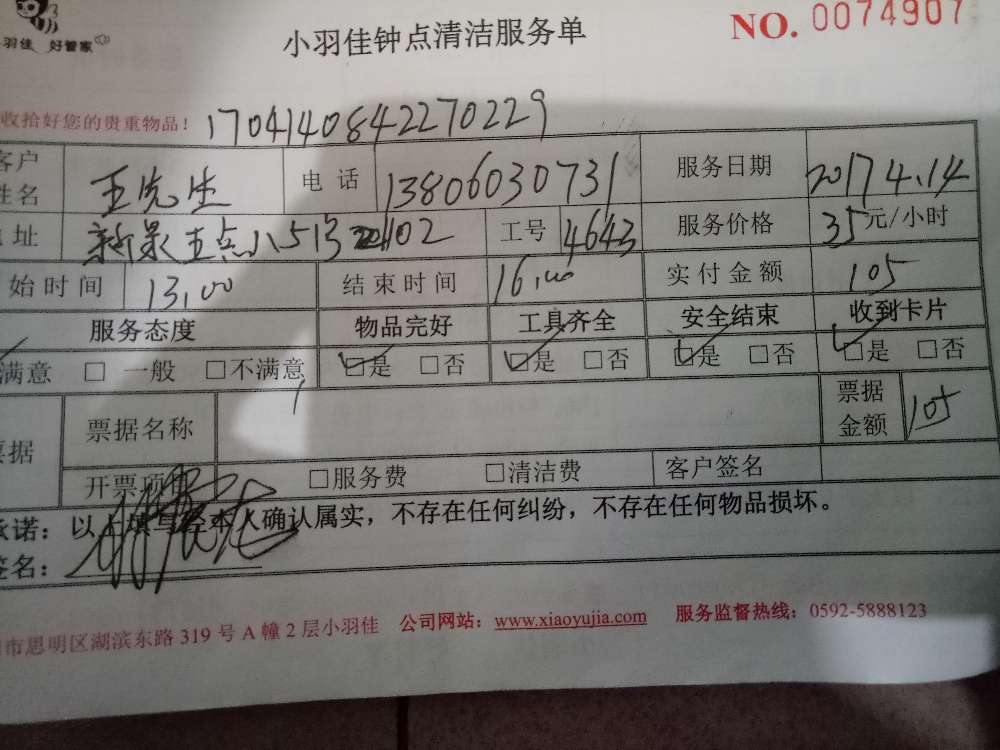 小羽佳钟点清洁服务单
NO. 0074907
羽佳 好管家
收拾好您的贵重物品! 1704140842270229
客户姓名 王先生 电话 13806030731 服务日期 2017 4.14
址 51 02 工号 4643 服务价格 35元/小时
始时间 13,00 结束时间 16,00 实付金额 105
服务态度 物品完好 工具齐全 安全结束 收到卡片
满意 □ 一般 □不满意 □是 □否 □是 □否 □是 □否 □是 □否
票据 票据名称 票据金额 105
开票项 □服务费 □清洁费 客户签名
承诺：以上填写经本人确认属实，不存在任何纠纷，不存在任何物品损坏。
签名：
市思明区湖滨东路 319 号 A 幢 2 层小羽佳 公司网站：www.xiaoyujia.com 服务监督热线：0592-5888123